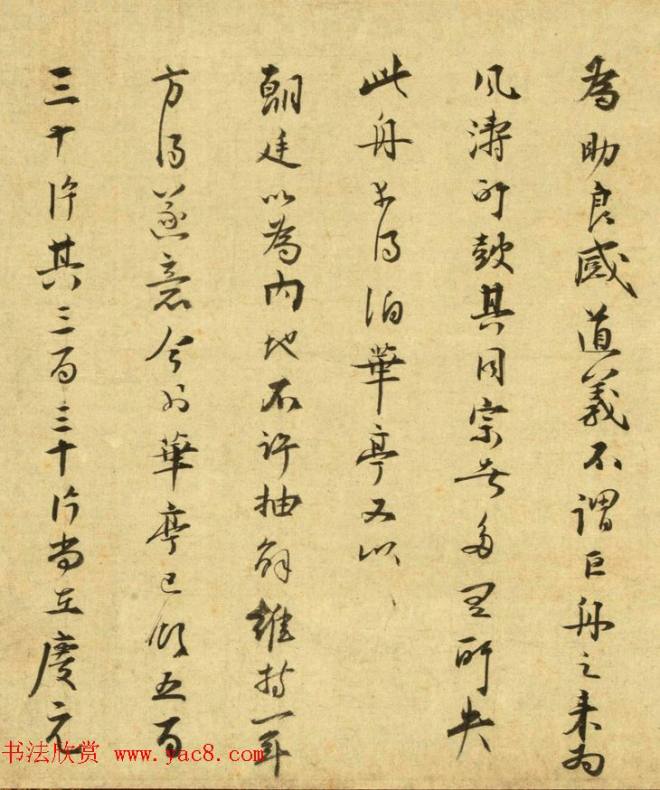 為助良感道義不謂巨舟之來為
風濤所鼓其同宗者多所失
此舟幸得泊華亭又以
朝廷以為内地不許抽解維持一年
方得遂意今到華亭已領五百
三十片其三百三十片尚在慶元
书法欣赏 www.yac8.com